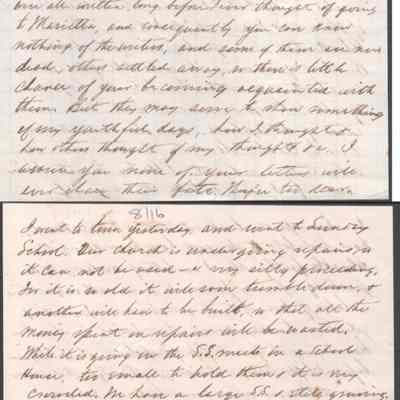 are all written long before I ever thought of going
to Marietta, and consequently you can know
nothing of the writers, and some of them are now
dead, others settled away, so there is little
chance of your becoming acquainted with
them. But they may serve to show something
of my youthful days, how I thought &
how others thought of my thoughts &c. I
assure you none of your letters will
ever share their fate. They're too dear
8/16
I went to town yesterday and went to Sunday
School. Our Church is undergoing repairs, so
it can not be used – a very silly proceeding,
for it is so old it will soon tumble down, &
another will have to be built, so that all the
money spent in repairs will be wasted.
While it is going on the S.S. meets in a School
House, too small to hold them & it is very
crowded. We have a large S.S. & still growing